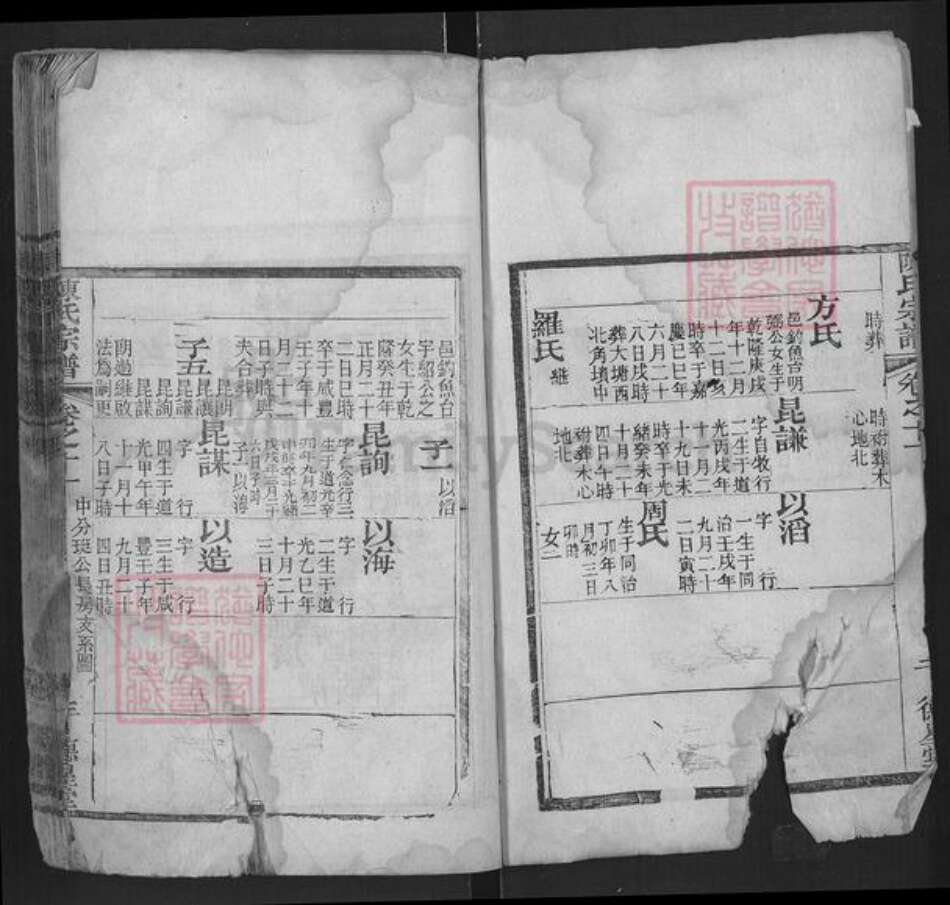 時葬
方氏
邑釣魚台明
弼公女生于
乾隆庚戌
年十二月
十二日亥
時卒于嘉
慶已巳年
六月二十
八日戌時
葬大塘西
北角墳中
羅氏 繼
時祔葬木
心地北
昆謙
字自牧行
二生于道
光丙戌年
十一月二
十九日未
時卒于光
緒癸未年
十月二十
四日午時
祔葬木心
地北
以滔
字 行
一生于同
治壬戌年
九月二十
二日寅時
周氏
生于同治
丁卯年八
月初三日
卯時
女二
陳氏宗譜
卷之十一
邑釣魚台
字紹公之
女生于乾
隆癸丑年
正月二十
二日巳時
卒于咸豐
壬子年十
月二十二
日子時與
夫合葬
子五
昆明
昆謙
昆讓
昆詢
昆謀
朗過繼啟
法為嗣更
子一 以滔
昆詢
字仁念行三
生于道光辛
卯年九月初二
子一以海
昆謀
字 行
四生于道
光甲午年
十一月十
八日子時
以海
字 行
二生于道
光乙巳年
十月二十
三日子時
以造
字 行
三生于咸
豐壬子年
九月二十
四日丑時
陳氏宗譜
卷之十一
中分斑公長房支系圖